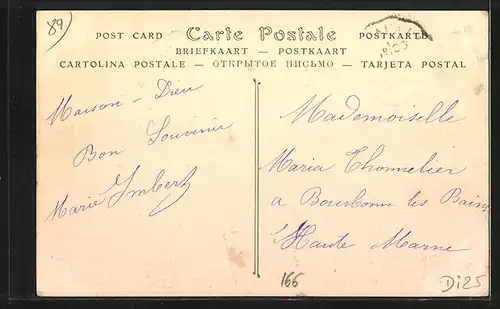 89
POST CARD Carte Postale POSTKARTE
BRIEFKAART — POSTKAART
CARTOLINA POSTALE — ОТКРЫТОЕ ПИСЬМО — TARJETA POSTAL
Maison - Dieu
Bon Souvenir
Marie Imbert
Mademoiselle
Maria Thonnelier
a Bourbonne les Bains
Haute Marne
166
Di25